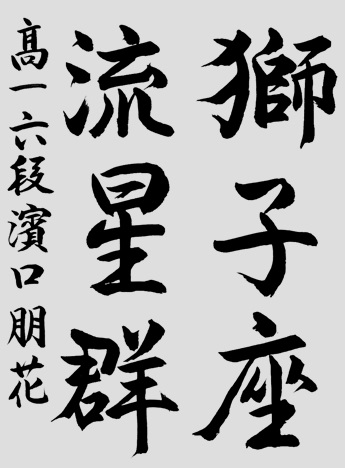 獅子座
流星群
高一六段濱口朋花